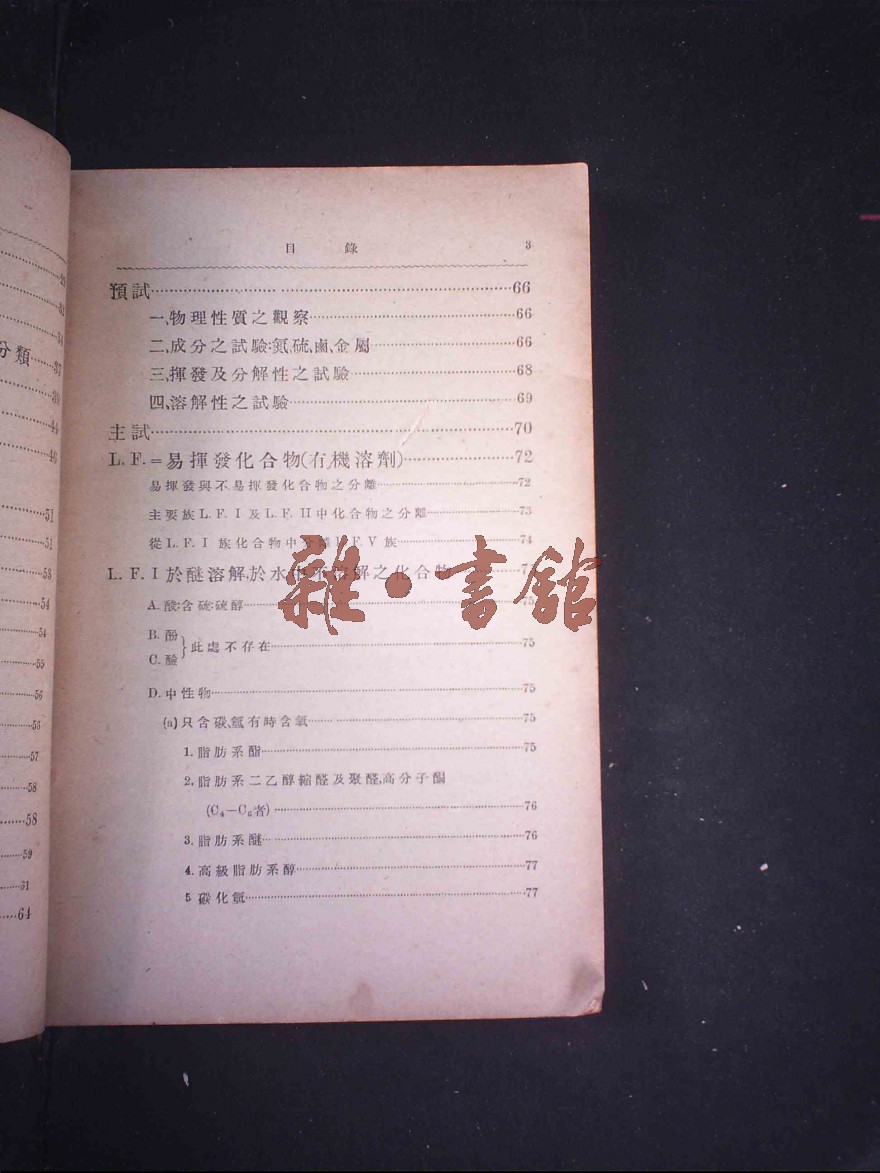 分類……37
39
44
46
51
51
53
54
54
55
56
56
57
58
58
59
61
64
目 錄 3
預試……66
一、物理性質之觀察……66
二、成分之試驗:氮、硫、鹵、金屬……66
三、揮發及分解性之試驗……68
四、溶解性之試驗……69
主試……70
L. F. = 易揮發化合物(有機溶劑)……72
易揮發與不易揮發化合物之分離……72
主要族 L. F. I 及 L. F. II 中化合物之分離……73
從 L. F. I 族化合物中分離 F. V 族……74
L. F. I 於醚溶解,於水中不溶解之化合物……
A. 酸:含硫:硫醇……75
B. 酚
C. 鹼
}此處不存在……75
D. 中性物……75
(a) 只含碳、氫有時含氧……75
1. 脂肪系酯……75
2. 脂肪系二乙醇縮醛及聚醛,高分子酮
(C₄—C₆者)……76
3. 脂肪系醚……76
4. 高級脂肪系醇……77
5 碳化氫……77
雜·書館